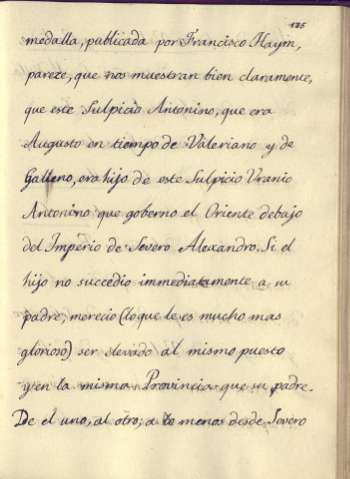 125
medalla, publicada por Francisco Haym,
pareze, que nos muestran bien claramente,
que este Sulpicio Antonino, que era
Augusto en tiempo de Valeriano y de
Galieno, era hijo de este Sulpicio Uranio
Antonino que goberno el Oriente debajo
del Imperio de Severo Alexandro. Si el
hijo no succedio immediatamente a su
padre, merecio (lo que le es mucho mas
glorioso) ser elevado al mismo puesto
y en la misma Provincia que su padre.
De el uno, al otro; a lo menos desde Severo